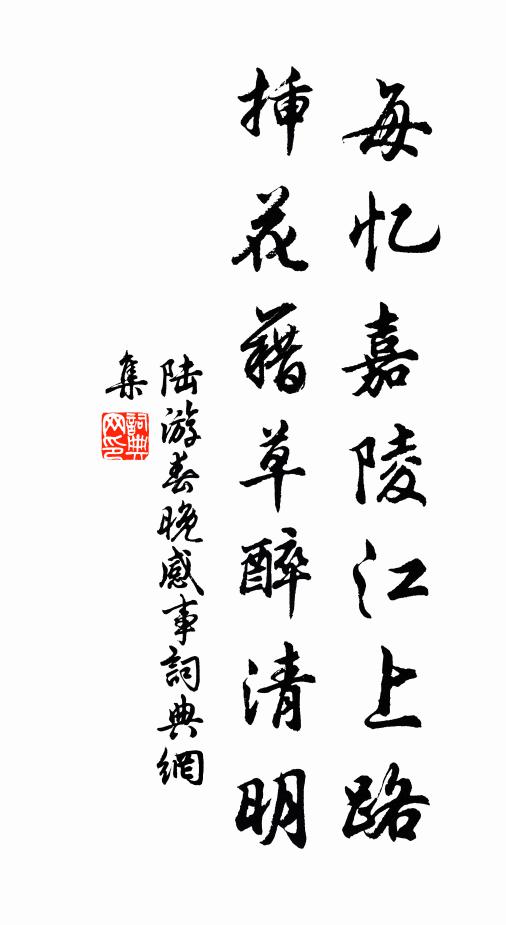 每忆嘉陵江上路
插花藉草醉清明
陆游春晚感事詞典網
集
詞典网印